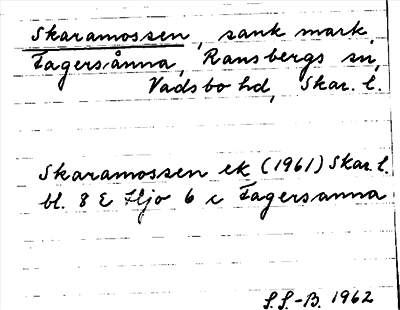 Skaramossen, sank mark,
Fagersånna, Ransbergs sn,
Vadsbo hd, Skar. l.
Skaramossen ek (1961) Skar. l.
bl. 8 E Hjo 6 c Fagersanna
S.S.-B. 1962